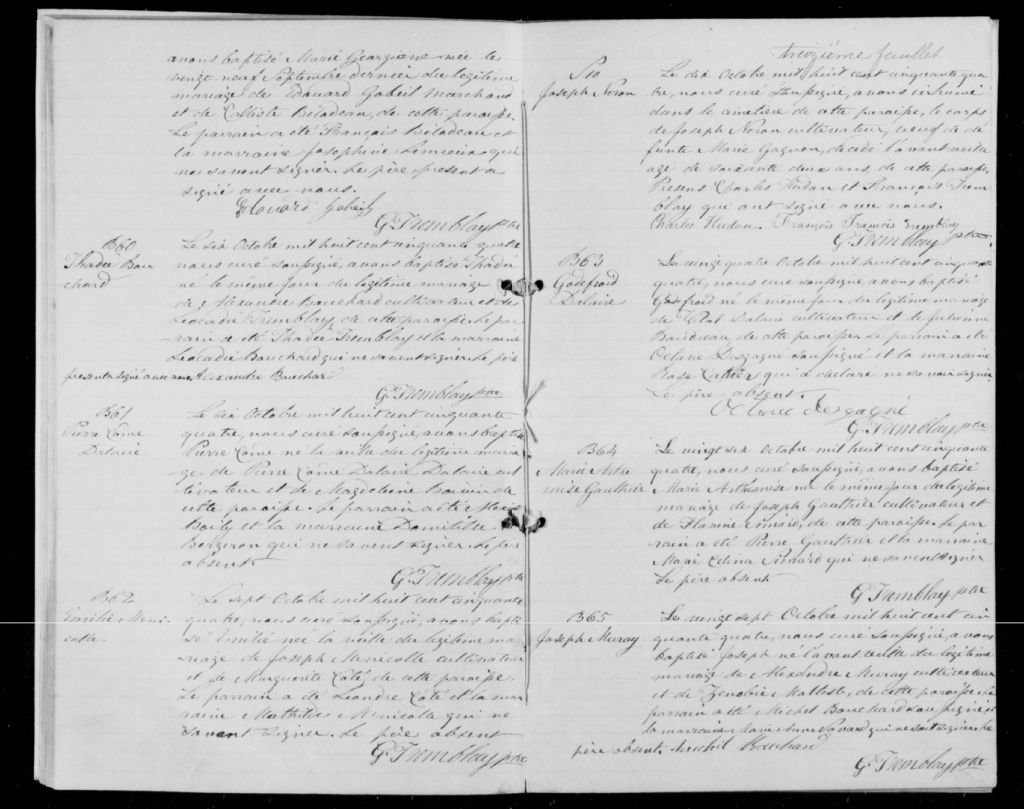 avons baptisé Marie Georgiane née le
vingt neuf Septembre dernier du légitime
mariage de Edouard Gobeil Marchand
et de Calliste Bilodeau, de cette paroisse.
Le parrain a été François Bilodeau et
la marraine Josephine Lemieux qui
ne savent signer. Le père present a
signé avec nous.
Edouard Gobeil
G. Tremblay ptre
B60
Thadée Bou
chard
Le six Octobre mil huit cent cinquante quatre
nous curé soussigné, avons baptisé Thadée
né le même jour du légitime mariage
de Alexandre Bouchard cultivateur et de
Léocadie Tremblay de cette paroisse. Le par
rain a été Thadée Tremblay et la marraine
Léocadie Bouchard qui ne savent signer. Le père
present a signé avec nous. Alexandre Bouchar
G. Tremblay ptre
B61
Pierre Côme
Dalaire
Le six Octobre mil huit cent cinquante
quatre, nous curé soussigné, avons baptisé
Pierre Côme né la veille du légitime maria
ge de Pierre Côme Dalaire Dalaire cul
tivateur et de Magdeleine Boivin de
cette paroisse. Le parrain a été
Boily et la marraine Domitilde
Bergeron qui ne savent signer. Le père
absent.
G. Tremblay ptre
B62
Emilie Meni
colle.
Le sept Octobre mil huit cent cinquante
quatre, nous curé soussigné, avons bapti
sé Emilie née la veille du légitime ma
riage de Joseph Menicolle cultivateur
et de Marguerite Côté, de cette paroisse.
Le parrain a été Léandre Côté et la mar
raine Mathilde Menicolle qui ne
savent signer. Le père absent
G. Tremblay ptre
treizième feuillet
S10
Joseph Neron
Le dix Octobre mil huit cent cinquante qua
tre, nous curé soussigné, avons inhumé
dans le cimetière de cette paroisse, le corps
de Joseph Neron cultivateur, veuf de dé
funte Marie Gagnon, decedé l'avant veille
agé de soixante deux ans, de cette paroisse.
Presens Charles Hudon et François Trem
blay qui ont signé avec nous.
Charles Hudon. François Francois Tremblay
G. Tremblay ptre.
B63
Godefroid
Dalaire
Le vingt quatre Octobre mil huit cent cinquante
quatre, nous curé soussigné, avons baptisé
Godefroid né le même jour du légitime mariage
de Vital Dalaire cultivateur et de Julienne
Boudreau, de cette paroisse. Le parrain a été
Octave Desgagné soussigné et la marraine
Rose qui a declaré ne savoir signer.
Le père absent.
Octave Degagné
G. Tremblay ptre
B64
Marie Arthé
mise Gauthier
Le vingt six Octobre mil huit cent cinquante
quatre, nous curé soussigné, avons baptisé
Marie Arthémise née le même jour du légitime
mariage de Joseph Gauthier cultivateur et
de Flavie Simard, de cette paroisse. Le par
rain a été Pierre Gauthier et la marraine
Marie Celina Simard qui ne savent signer
Le père absent.
G. Tremblay ptre
B65
Joseph Muray
Le vingt sept Octobre mil huit cent cin
quante quatre, nous curé soussigné, avons
baptisé Joseph né l'avant veille du légitime
mariage de Alexandre Muray cultivateur
et de Zenobie Malteste, de cette paroisse. Le
parrain a été Michel Bouchard soussigné et
la marraine Marie Anne Savard qui ne sait signer. Le
père absent. Michel Bouchard
G. Tremblay ptre